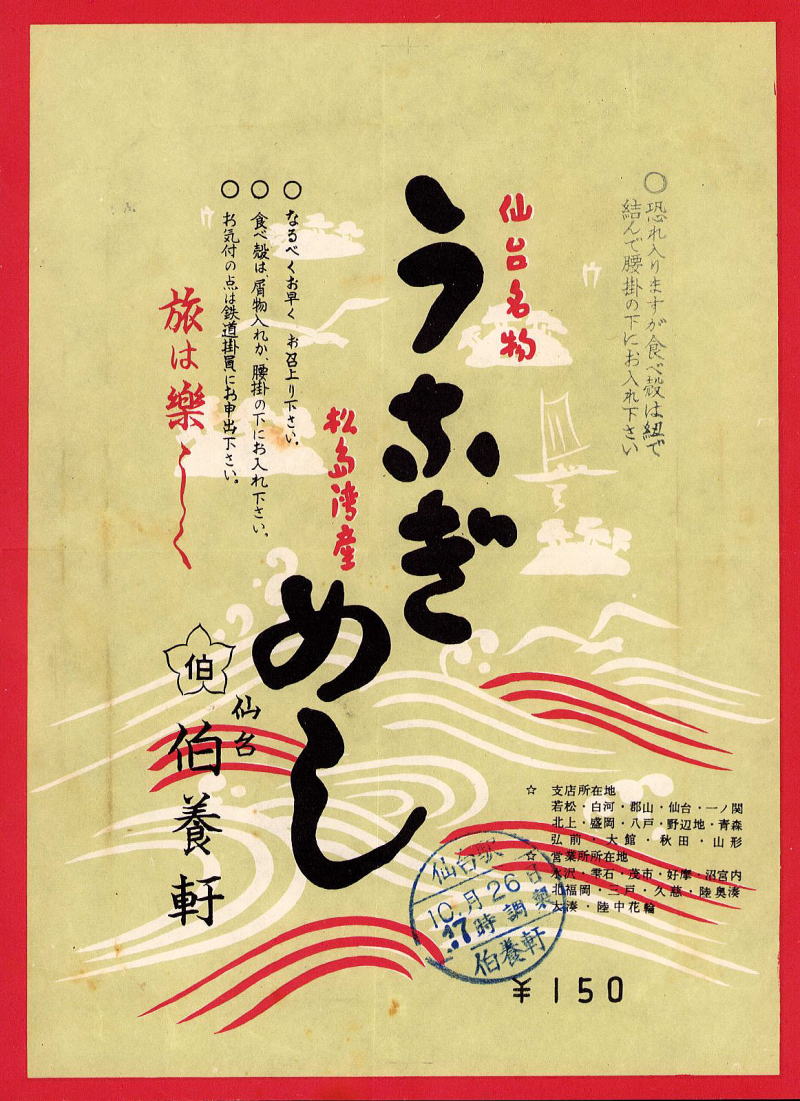 ○恐れ入りますが食べ殻は紐で
結んで腰掛の下にお入れ下さい
仙台名物
うなぎ
めし
松島湾産
○なるべくお早く お召上り下さい。
○食べ殻は、屑物入れか、腰掛の下にお入れ下さい。
○お気付の点は鉄道掛員にお申出下さい。
旅は樂しく
伯
仙台
伯養軒
☆ 支店所在地
若松・白河・郡山・仙台・一ノ関
北上・盛岡・八戸・野辺地・青森
弘前・大館・秋田・山形
☆ 営業所所在地
水沢・雫石・茂市・好摩・沼宮内
北福岡・三戸・久慈・陸奥湊
大湊・陸中花輪
仙台駅
10月26日
17時調製
伯養軒
¥150